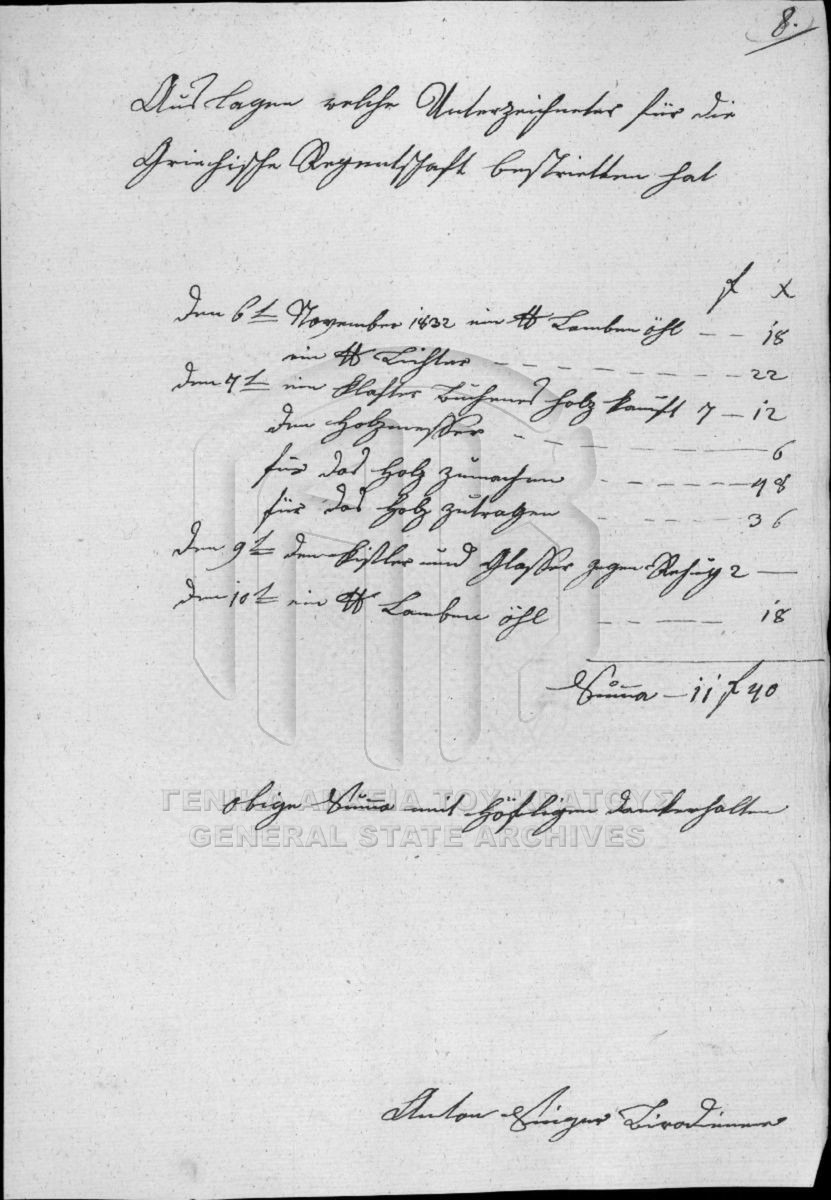 8.
Auslagen welche Unterzeichneter für die
Griechische Regentschaft bestrietten hat
f x
den 6t November 1832 ein ℔ Lamben öhl — — 18
ein ℔ Lichter — — — 22
den 7t ein Klafter Buchenes holz kauft 7 — 12
den Holzmesser — — — 6
für das Holz zumachen — — — 48
für das Holz zutragen — — — 36
den 9t den Kistler und Glasser gegen 2 —
den 10t ein ℔ Lamben öhl — — — 18
Suma — 11 f 40
obige Suma mit Höfligen dank erhalten
Anton Singer Birodiener
ΓΕΝΙΚΑ ΑΡΧΕΙΑ ΤΟΥ ΚΡΑΤΟΥΣ
GENERAL STATE ARCHIVES